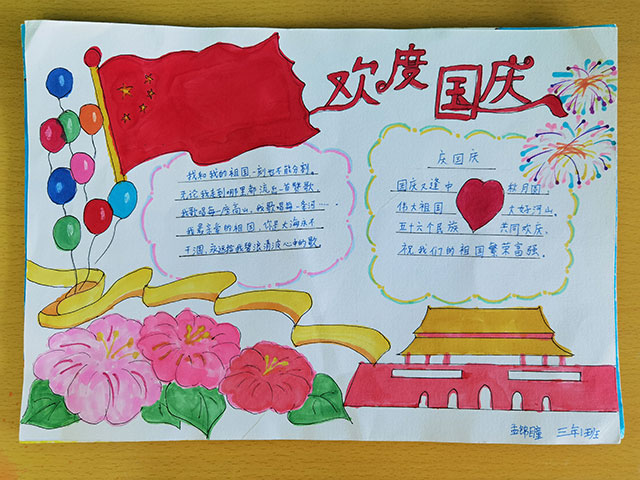 欢度国庆
我和我的祖国一刻也不能分割。
无论我走到哪里都流出一首赞歌。
我歌唱每一座高山，我歌唱每一条河……
我最亲爱的祖国，你是大海永不
干涸，永远给我碧浪清波心中的歌。
庆国庆
国庆又逢中秋月圆
伟大祖国大好河山。
五十六个民族共同欢庆。
祝我们的祖国繁荣富强。
三年1班